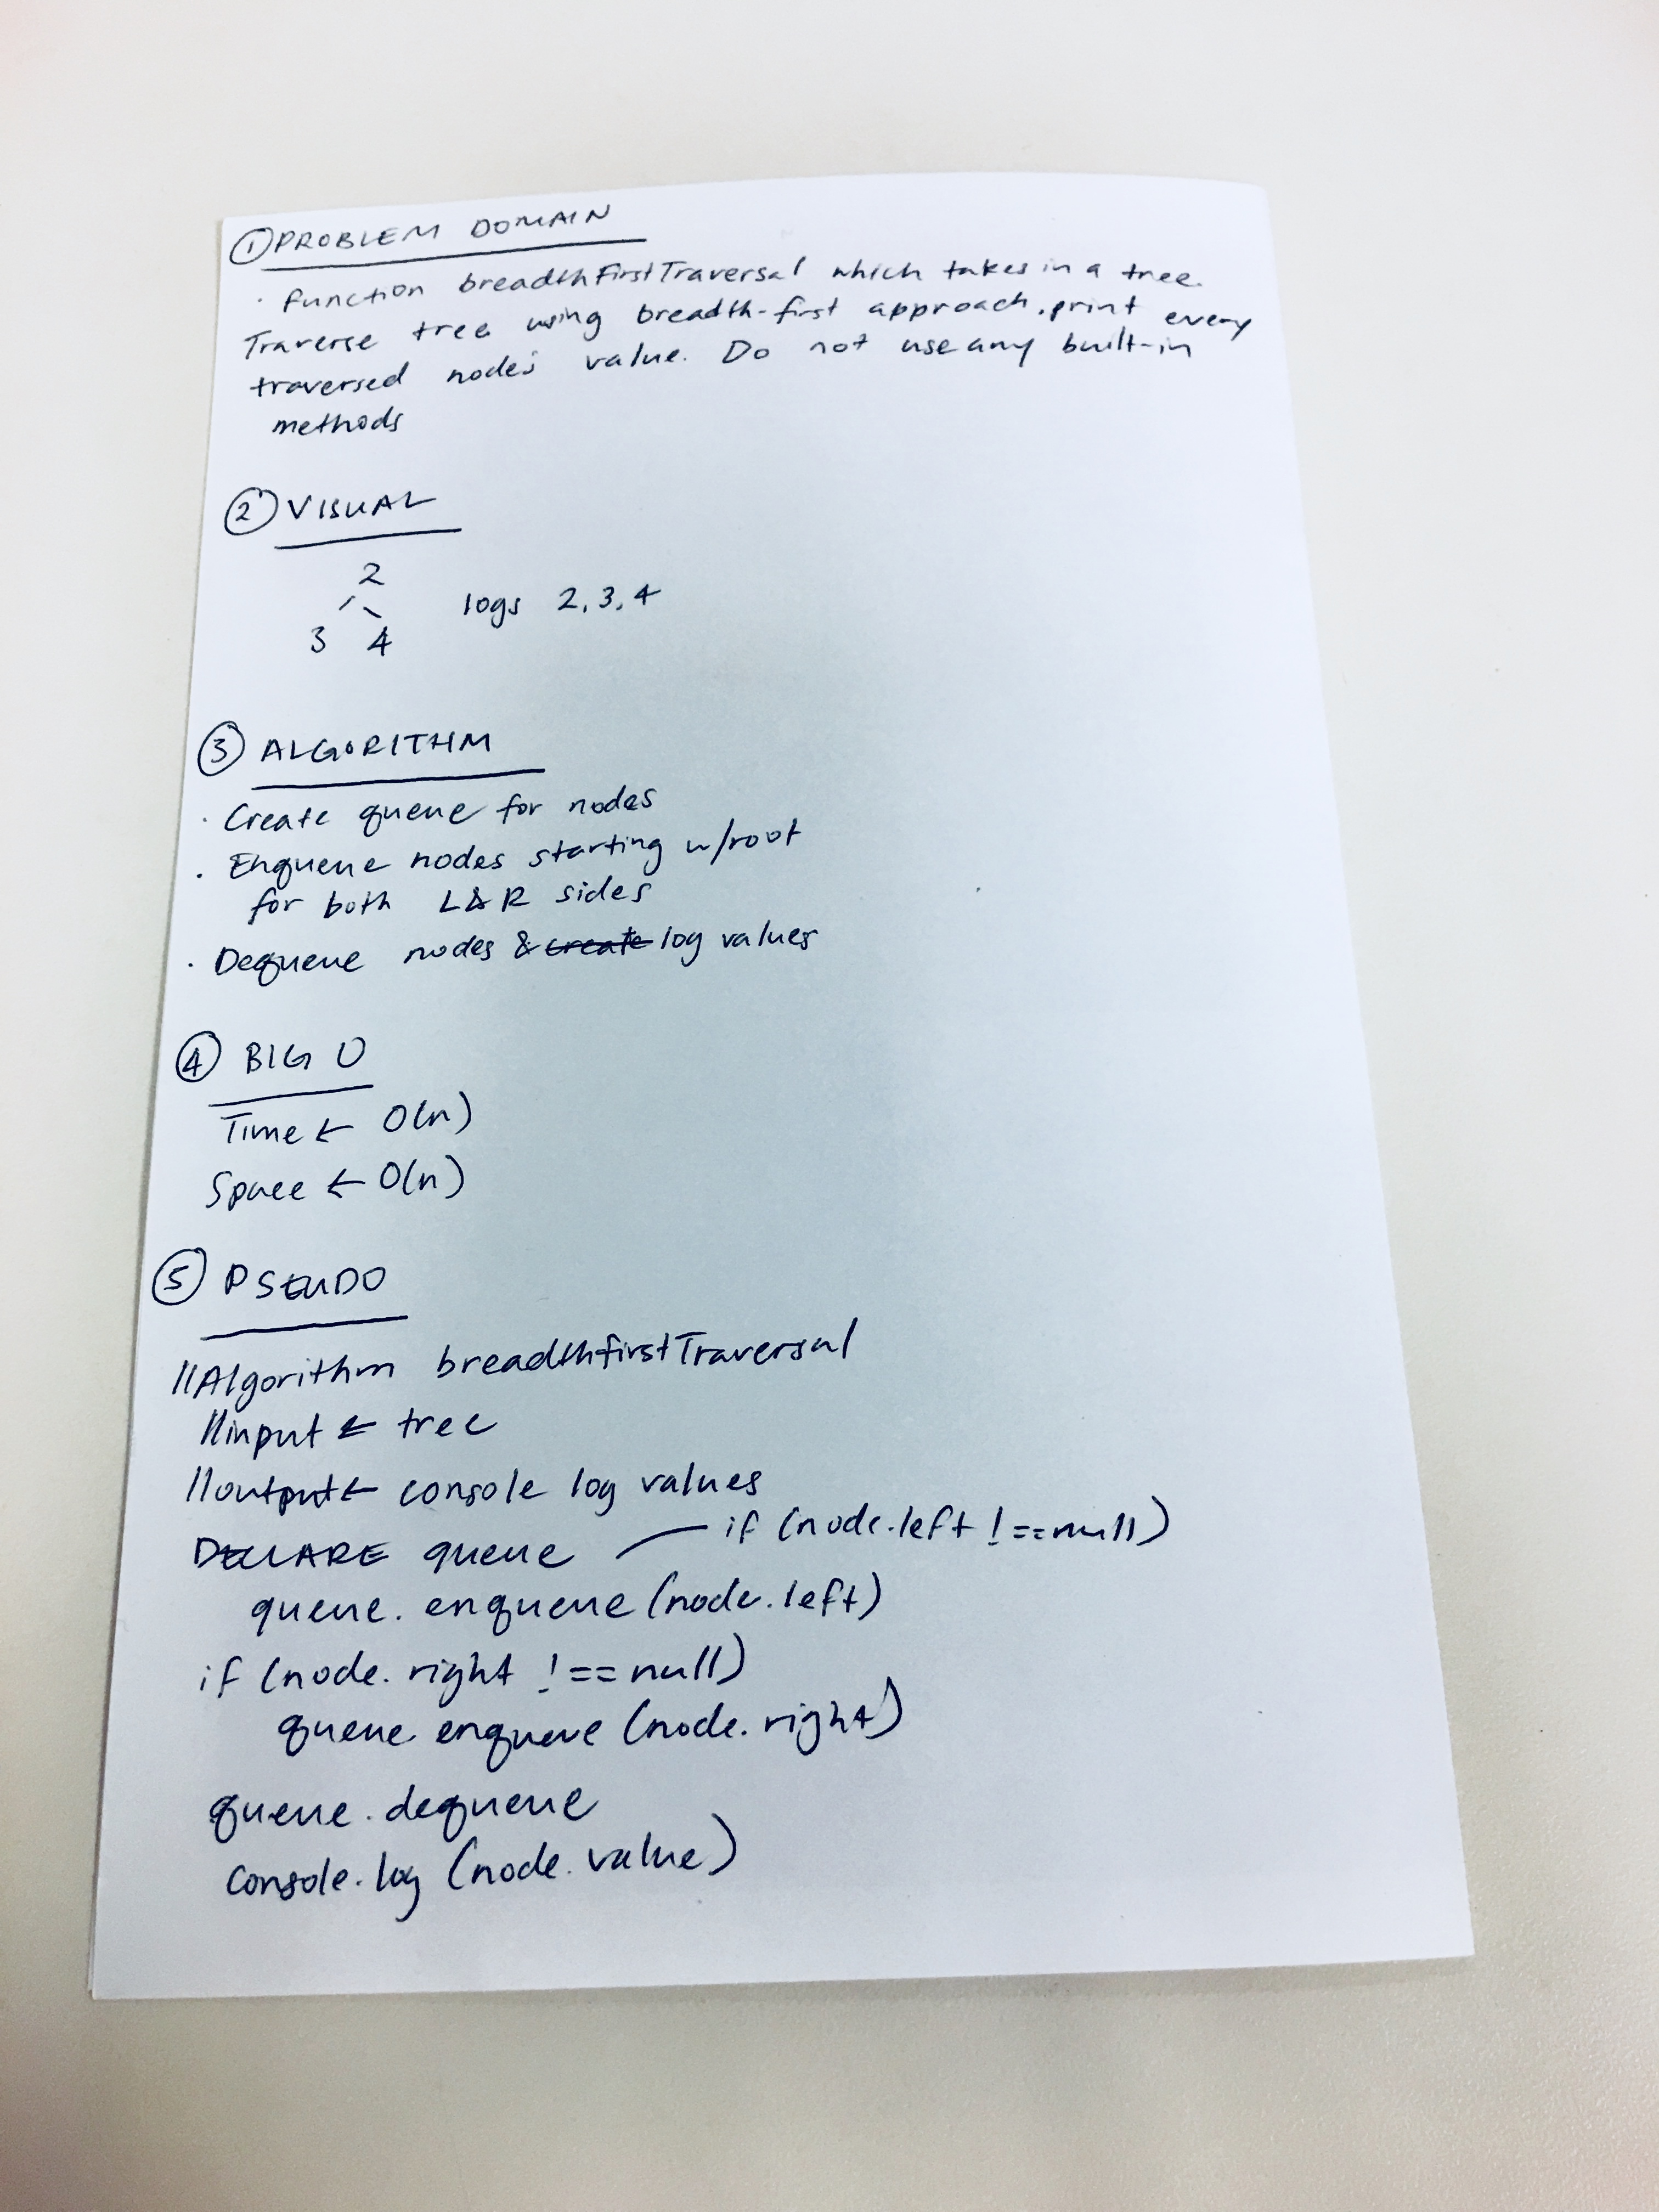 ① PROBLEM DOMAIN
· function breadthFirstTraversal which takes in a tree.
Traverse tree using breadth-first approach, print every
traversed node's value. Do not use any built-in
methods
② VISUAL
2
3 4
logs 2, 3, 4
③ ALGORITHM
· Create queue for nodes
· Enqueue nodes starting w/root
for both L&R sides
· Dequeue nodes & create log values
④ BIG O
Time ← O(n)
Space ← O(n)
⑤ PSEUDO
//Algorithm breadthfirstTraversal
//input ← tree
//output ← console log values
DECLARE queue — if (node.left !== null)
queue.enqueue(node.left)
if (node.right !== null)
queue.enqueue(node.right)
queue.dequeue
console.log(node.value)